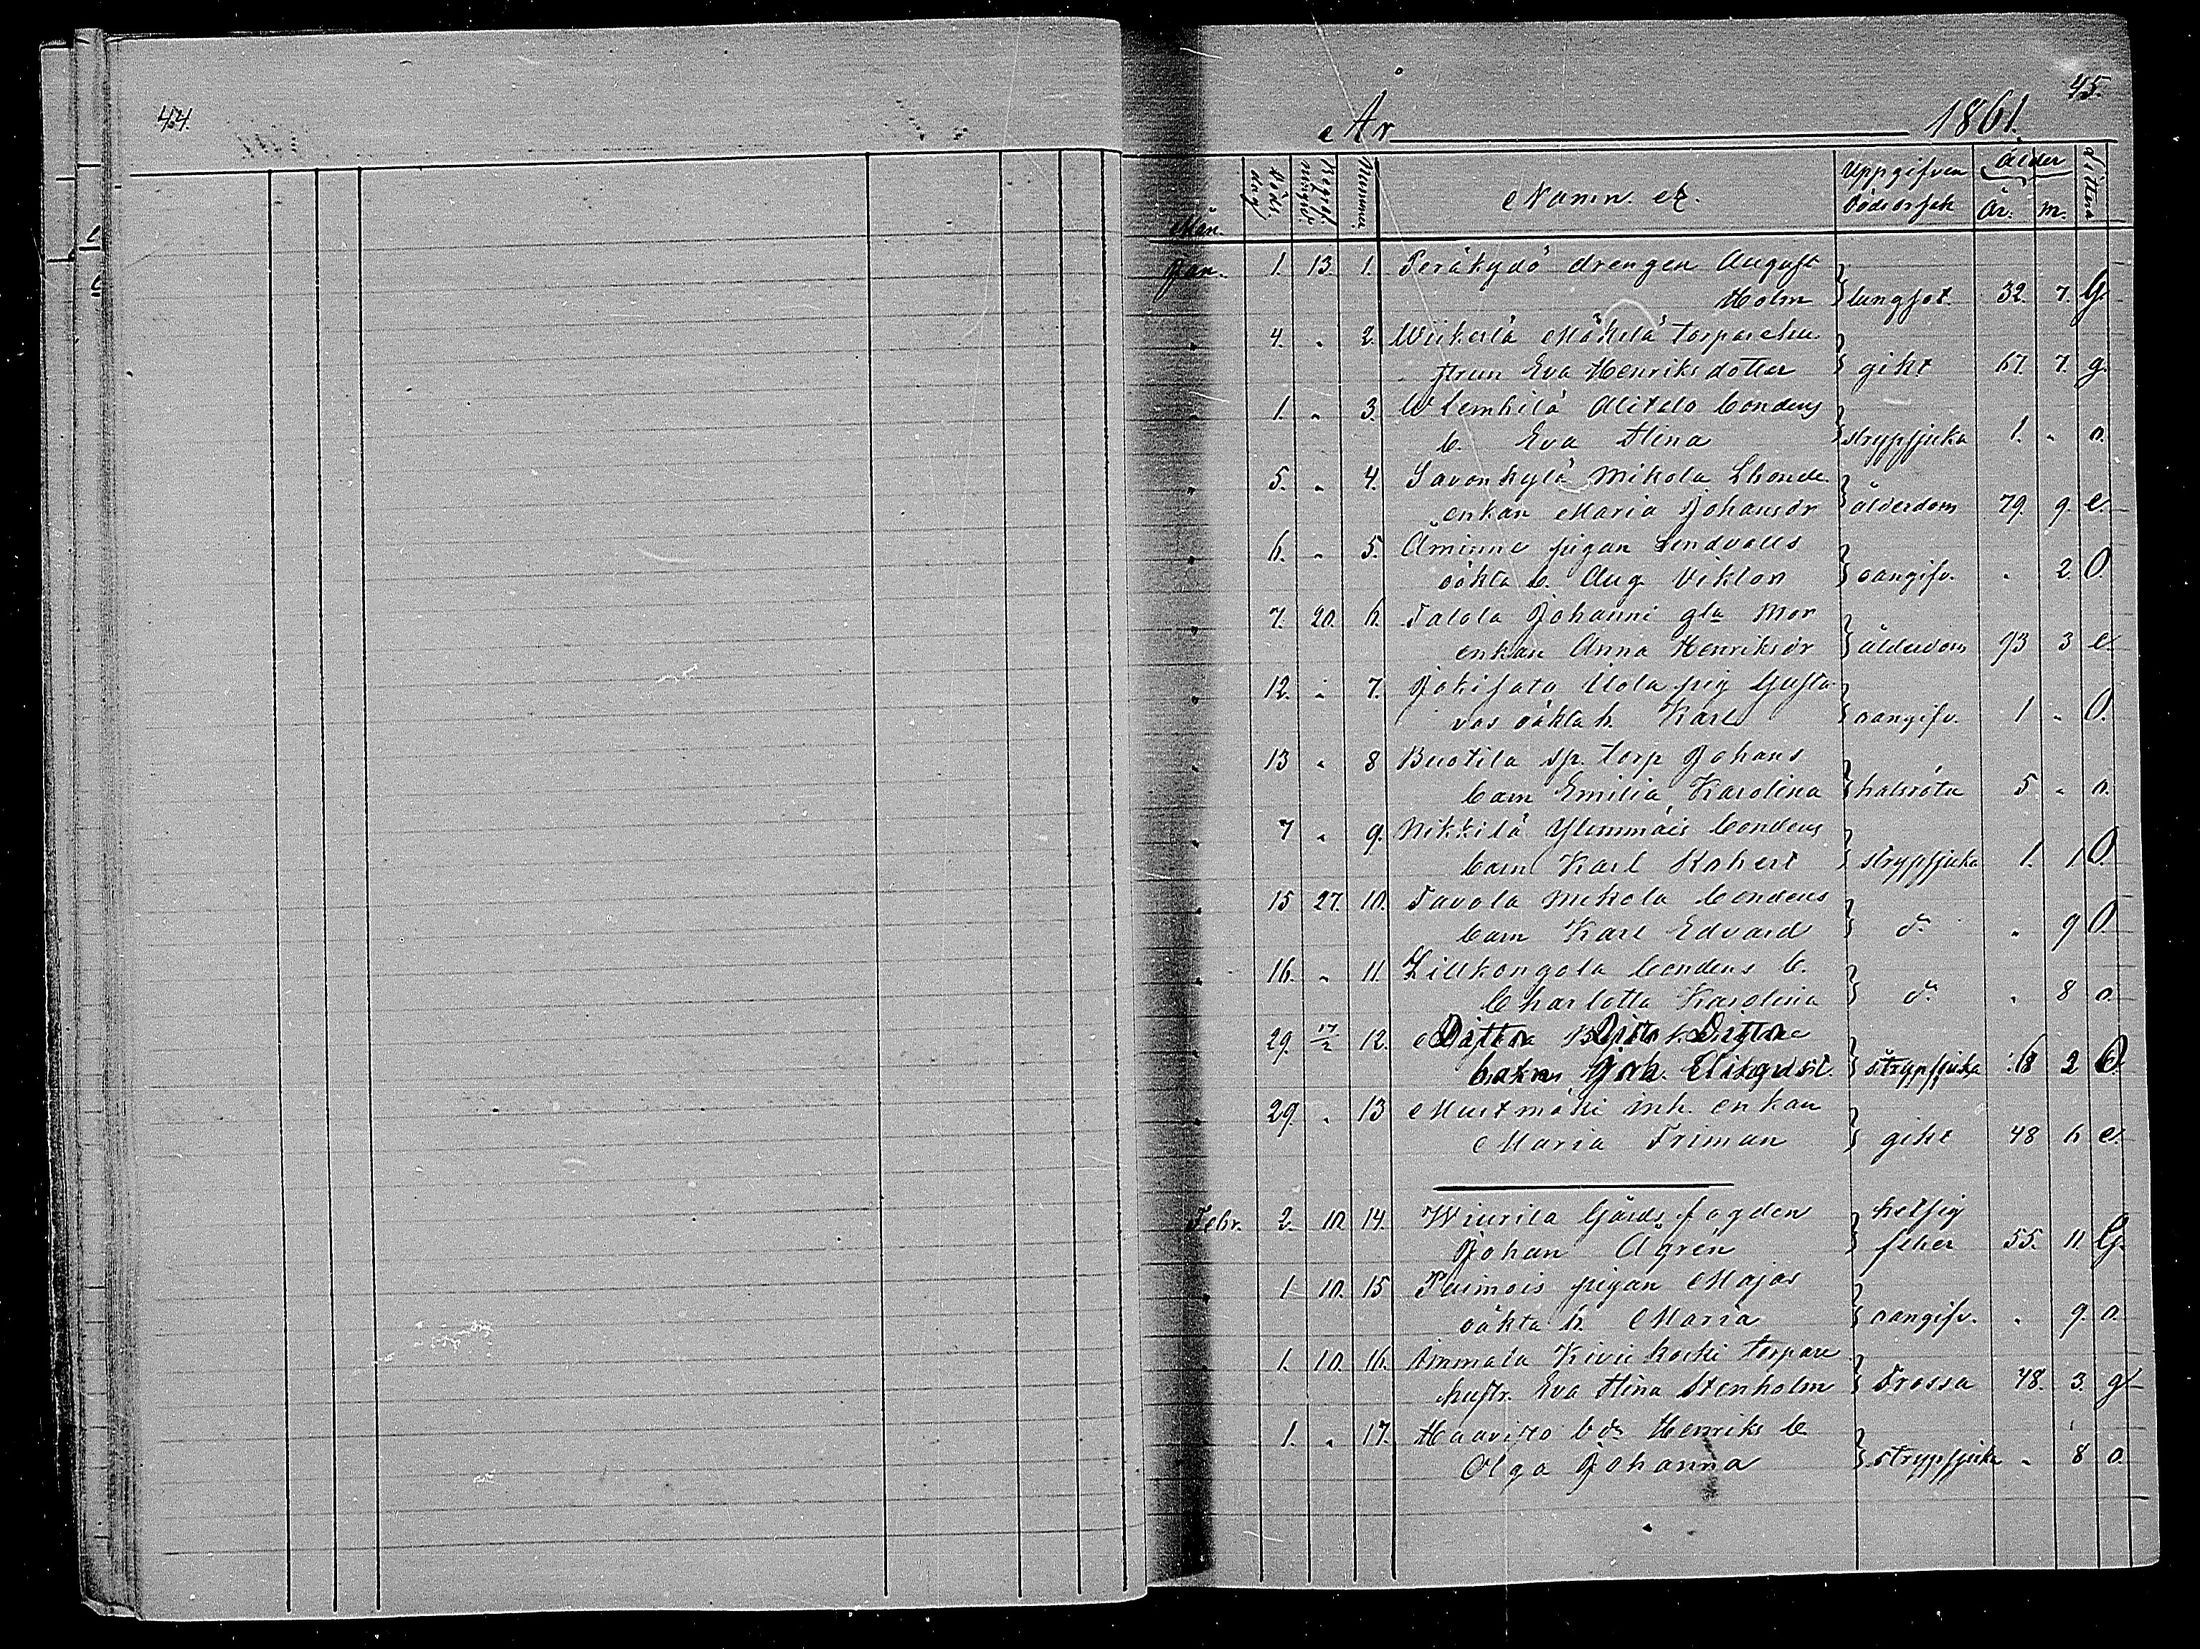 44.
45.
År 1861.
Mån. Döds dag Nummer Namn. etc. Uppgifven Dödsorsak Ålder År. M. Littera
Jan. 1. 13. 1. Peräkydö drengen August
Holm lungsot 32. 7. G.
" 4. " 2. Wiikerlä Mäkelä torpare hu-
strun Eva Henriksdotter gikt 67. 7. g.
" 1. " 3. Alitalo bondens
b. Eva Stina strypsjuka 1. " o.
" 5. " 4. Savonkylä Mikola
enkan Maria Johansdr ålderdom 79. 9. e.
" 6. " 5. Åminne pigan Lindvalls
oäkta b. Aug. Viktor oangifv. " 2. O.
" 7. 20. 6. Talola Johanni gla Mor
enkan Anna Henriksdr ålderdom 93 3 e.
" 12. " 7. Jokisata Uola pig Gusta-
vas oäkta b. Karl oangifv. 1 " O.
" 13 " 8 Buotila sp. torp Johans
barn Emilia Karolina halsröta 5 " o.
" 7 " 9. Nikkilä Ylemmäis bondens
barn Karl Robert strypsjuka 1. 1 O.
" 15 27. 10. Tavola Mikola bondens
barn Karl Edvard do " 9 O.
" 16. " 11. Lillkongola bondens b.
Charlotta Karolina do " 8 o.
" 29. 17/2 12.
strypsjuka 2 O.
" 29. " 13 Mustmäki inh. enkan
Maria Friman gikt 48 6 e.
Febr. 2. 10 14. Wiurila Gårds fogden
Johan Ågren hetsig feber 55. 11. G.
" 1 10. 15 Paimois pigan Majas
oäkta b. Maria oangifv. " 9. o.
1. 10. 16. Ammala torpare
hustr. Eva Stina Stenholm Frossa 48. 3. g
1. " 17. Haavisto bds Henriks b.
Olga Johanna strypsjuka " 8 o.